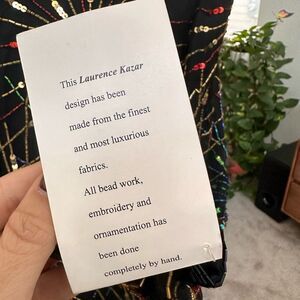 This Laurence Kazar
design has been
made from the finest
and most luxurious
fabrics.
All bead work,
embroidery and
ornamentation has
been done
completely by hand.